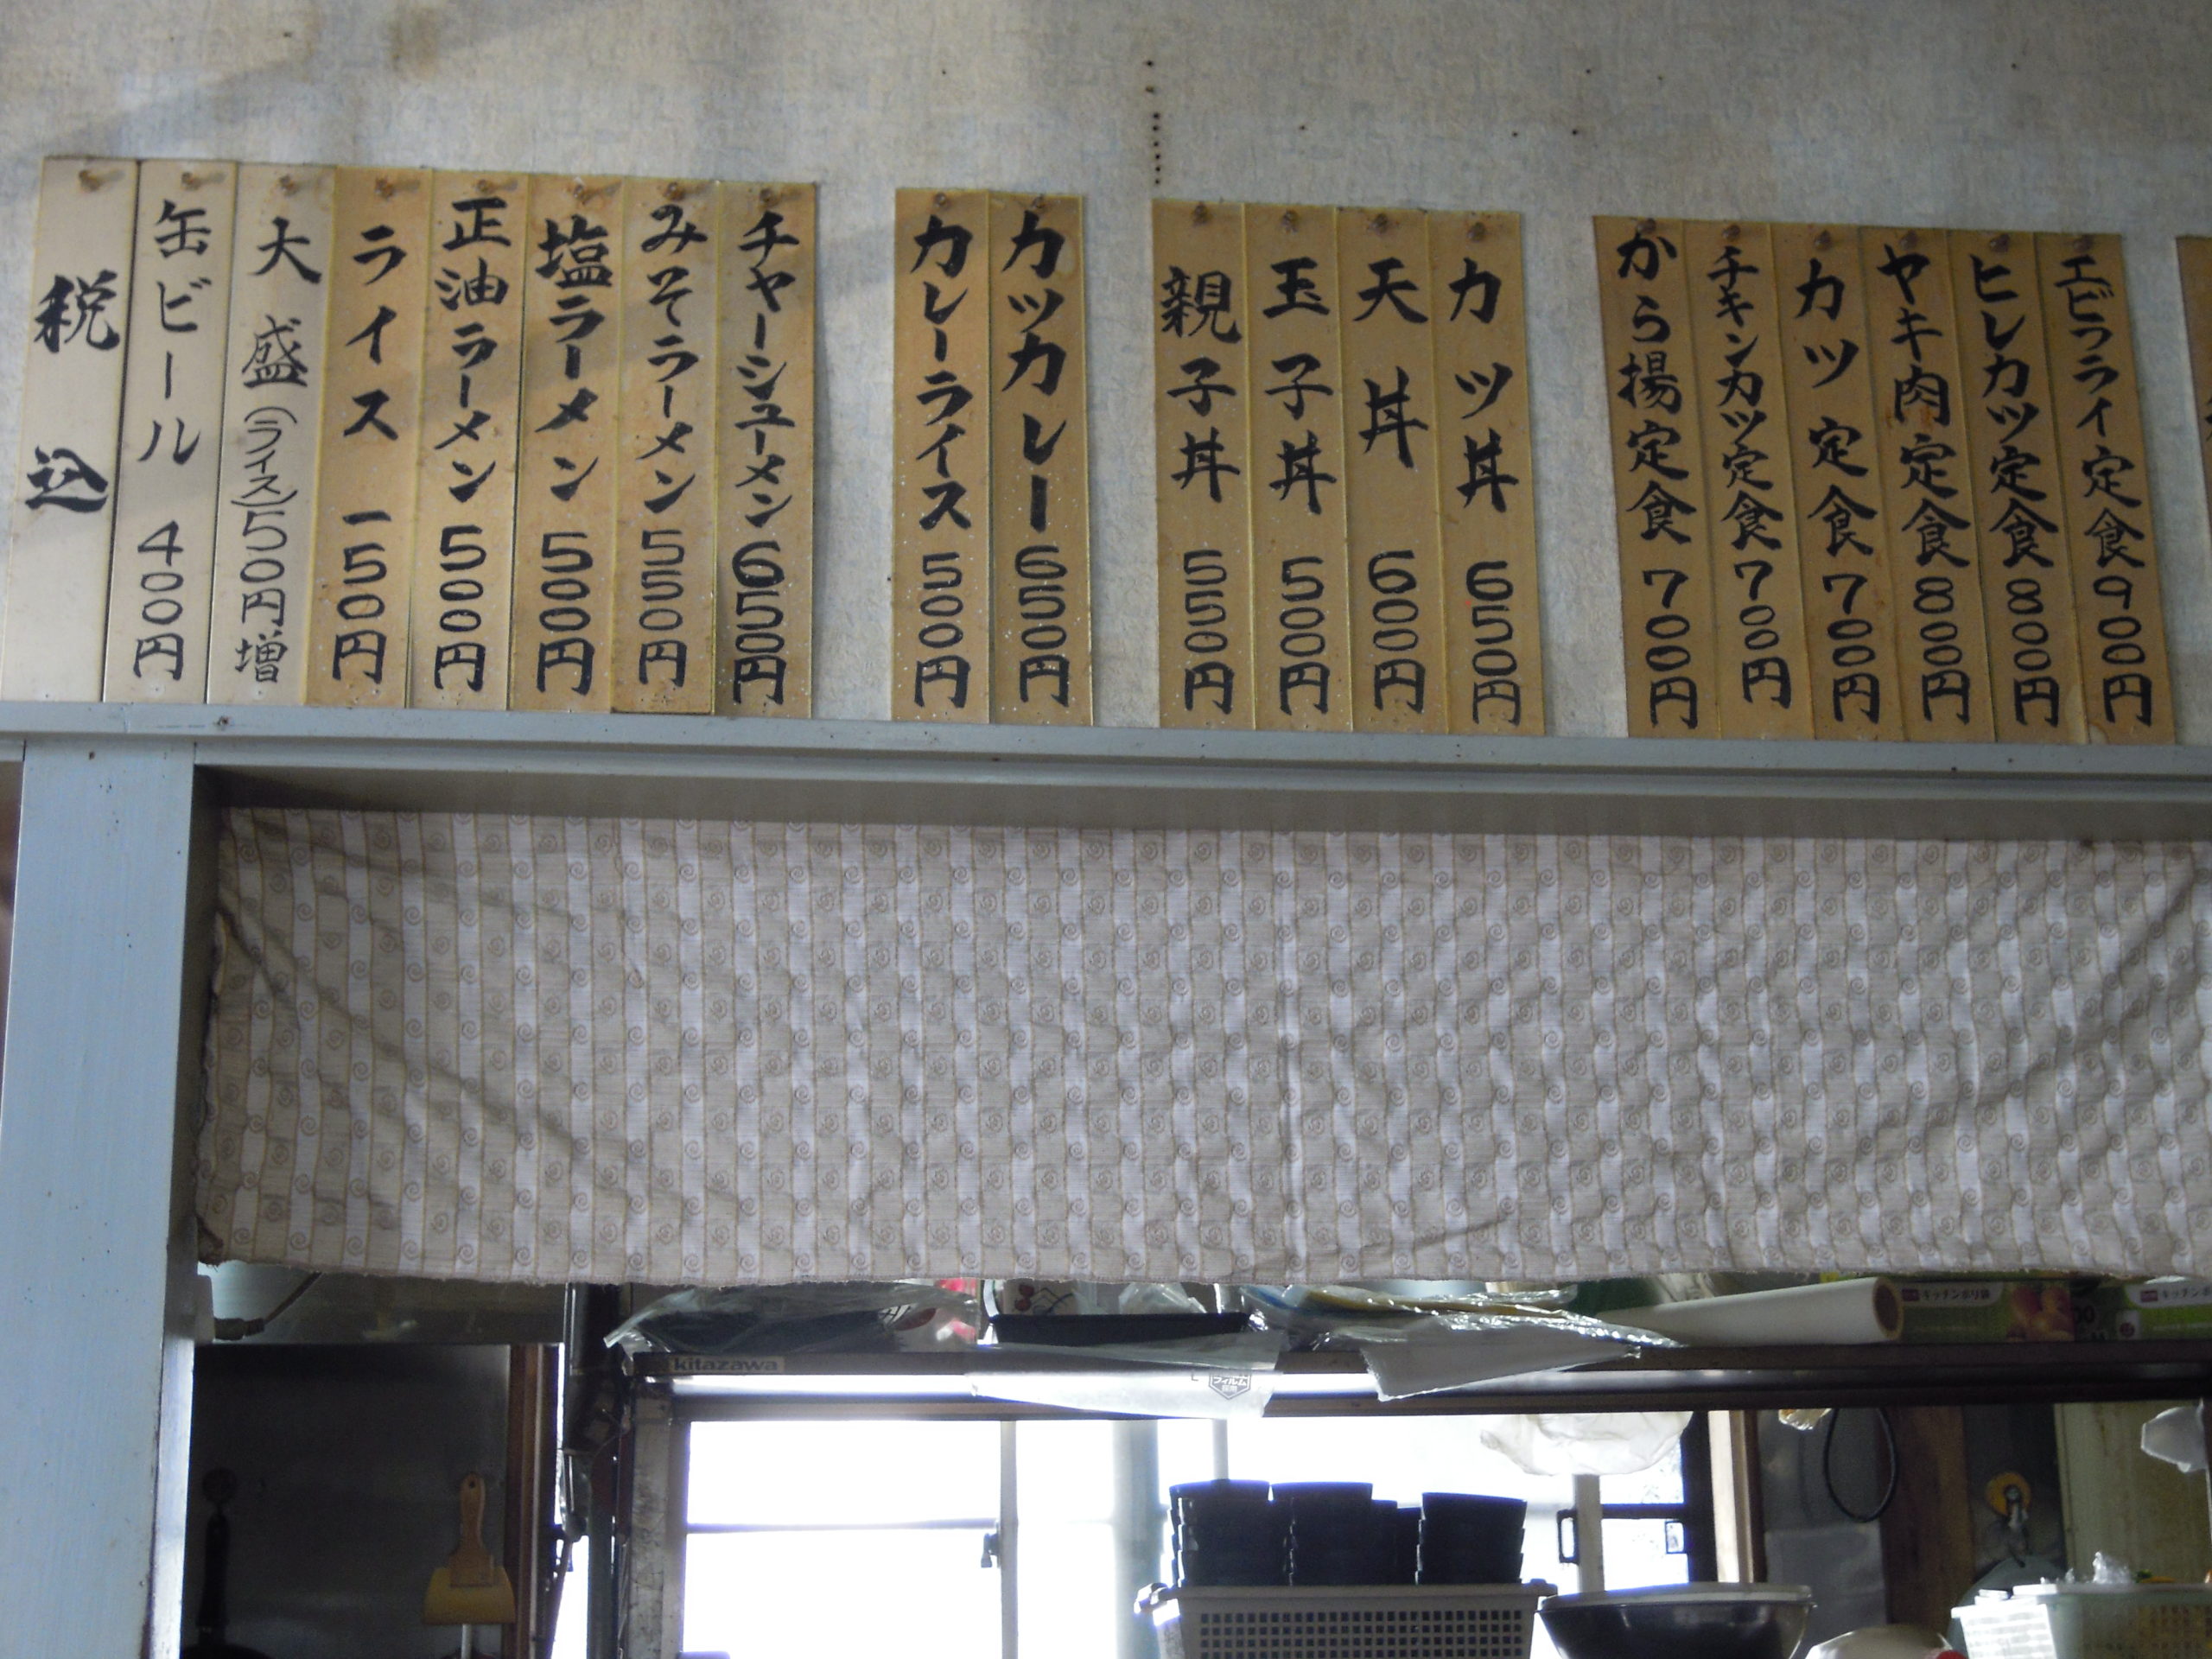 エビフライ定食900円
ヒレカツ定食800円
ヤキ肉定食800円
カツ定食700円
チキンカツ定食700円
から揚定食700円
カツ丼650円
天丼600円
玉子丼500円
親子丼550円
カツカレー650円
カレーライス500円
チャーシューメン650円
みそラーメン550円
塩ラーメン500円
正油ラーメン500円
ライス150円
大盛(ライス)50円増
缶ビール400円
税込
キッチンポリ袋
kitazawa